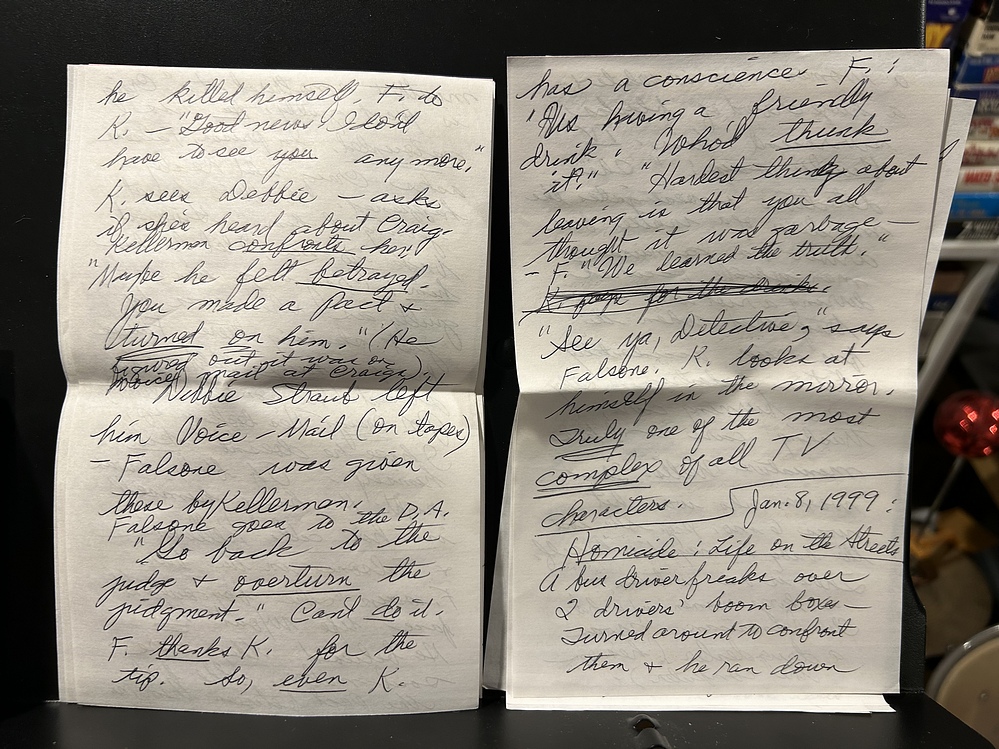 he killed himself. F. to
K. – "Good news! I don't
have to see you any more."
K. sees Debbie – asks
if she's heard about Craig.
Kellerman confronts her,
"Maybe he felt betrayed.
You made a pact &
turned on him." (He
found out it was on
Voice mail at Craigs).
Debbie Straub left
him Voice-Mail (on tapes)
– Falsone was given
these by Kellerman.
Falsone goes to the D.A.
"Go back to the
judge & overturn the
judgment." Can't do it.
F. thanks K. for the
tip. So, even K.
has a conscience F.:
"Us having a friendly
drink. Who'd thunk
it?" "Hardest thing about
leaving is that you all
thought it was garbage –
– F. "We learned the truth."
K. pays for the drinks.
"See ya, Detective," says
Falsone. K. looks at
himself in the mirror.
Truly one of the most
complex of all TV
characters. Jan. 8, 1999:
Homicide: Life on the Streets
A bus driver freaks over
2 drivers' boom boxes –
Turned around to confront
them & he ran down